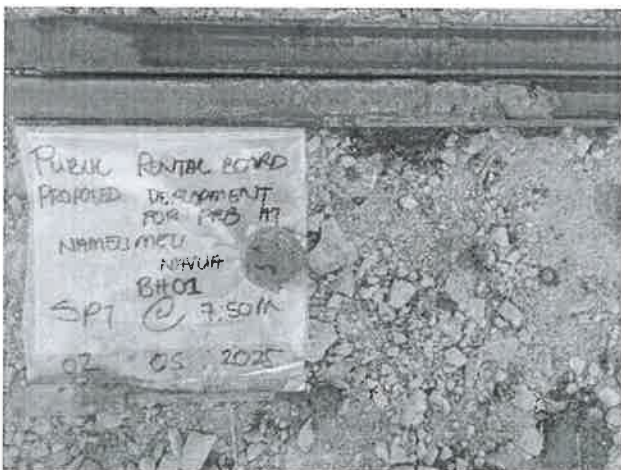 PUBLIC RENTAL BOARD
PROPOSED DEVELOPMENT
FOR PRB AT
NAMELIMELI
NAVUA
BH01
SPT @ 7.50m
02 05 2025